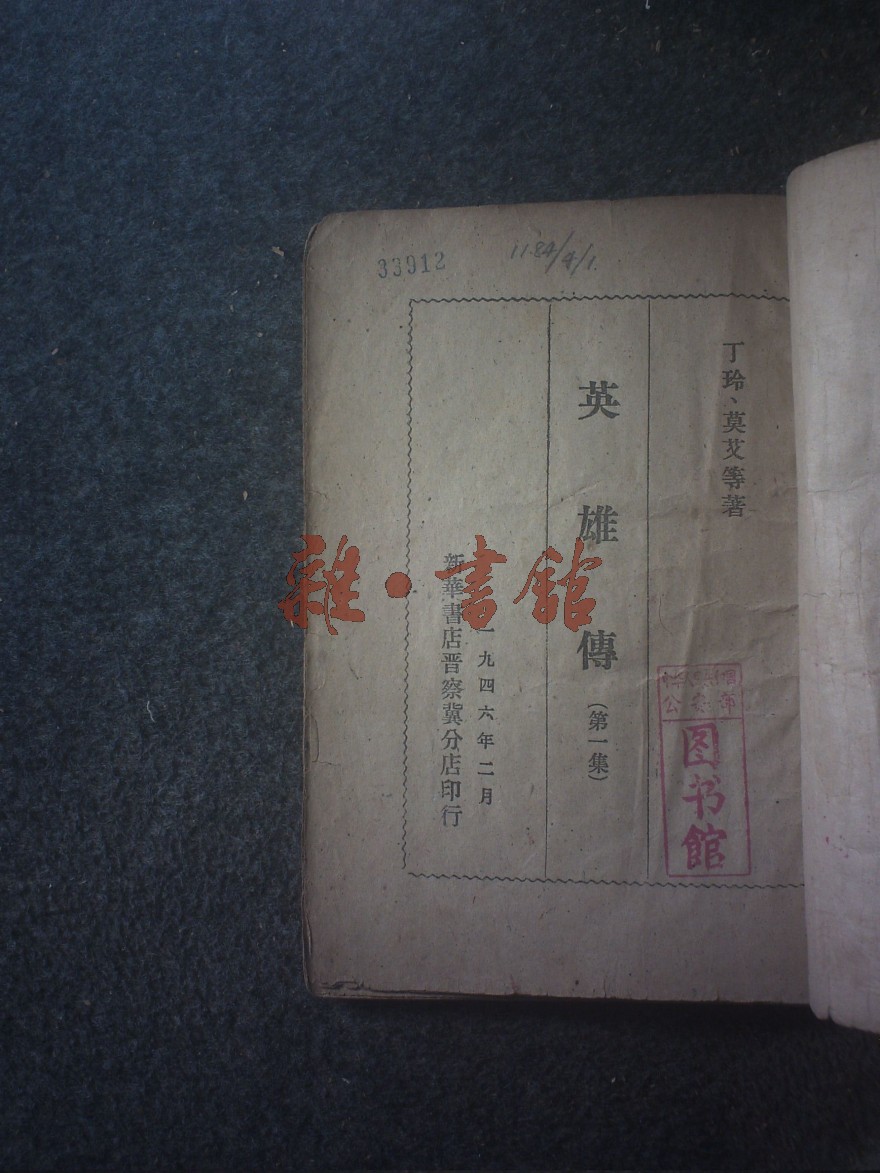 33912
11.84/4/1.
丁玲、莫艾等著
英雄傳
(第一集)
一九四六年二月
新華書店晋察冀分店印行
图书馆
雜·書館